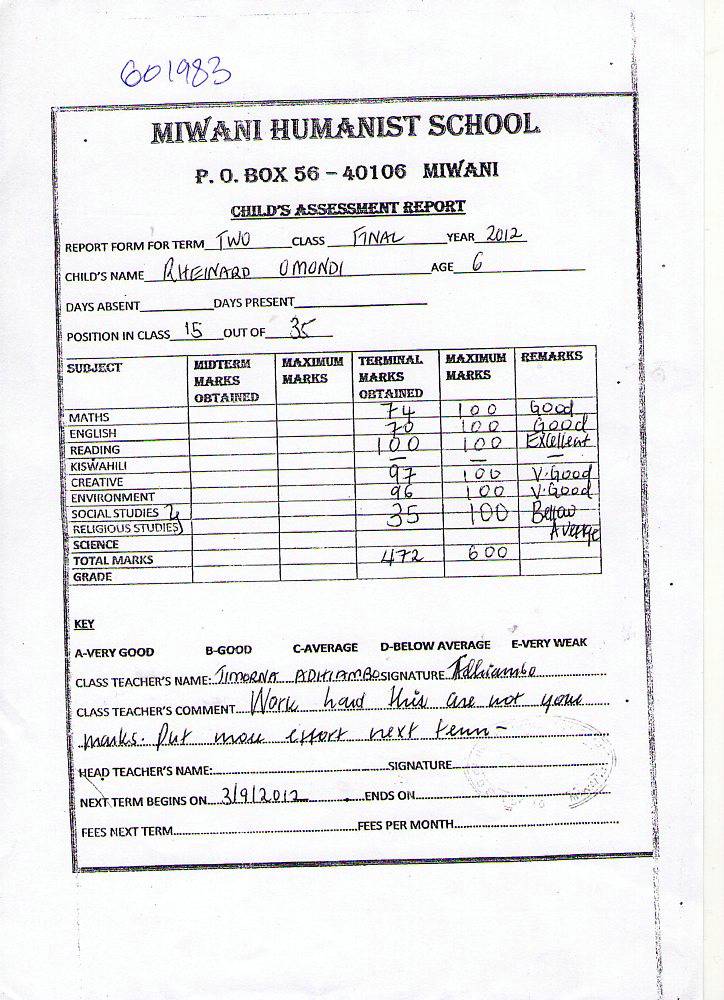 601983
MIWANI HUMANIST SCHOOL
P. O. BOX 56 – 40106 MIWANI
CHILD'S ASSESSMENT REPORT
REPORT FORM FOR TERM TWO CLASS FINAL YEAR 2012
CHILD'S NAME RHEINARD OMONDI AGE 6
DAYS ABSENT DAYS PRESENT
POSITION IN CLASS 15 OUT OF 35
SUBJECT MIDTERM MARKS OBTAINED MAXIMUM MARKS TERMINAL MARKS OBTAINED MAXIMUM MARKS REMARKS
MATHS 74 100 Good
ENGLISH 70 100 Good
READING 100 100 Excellent
KISWAHILI — — —
CREATIVE 97 100 V.Good
ENVIRONMENT 96 100 V.Good
SOCIAL STUDIES 35 100 Below
RELIGIOUS STUDIES) Average
SCIENCE
TOTAL MARKS 472 600
GRADE
KEY
A-VERY GOOD B-GOOD C-AVERAGE D-BELOW AVERAGE E-VERY WEAK
CLASS TEACHER'S NAME: ADHIAMBO SIGNATURE Adhiambo
CLASS TEACHER'S COMMENT Work hard this are not your
marks. Put more effort next term –
HEAD TEACHER'S NAME: SIGNATURE
NEXT TERM BEGINS ON 3/9/2012 ENDS ON
FEES NEXT TERM FEES PER MONTH